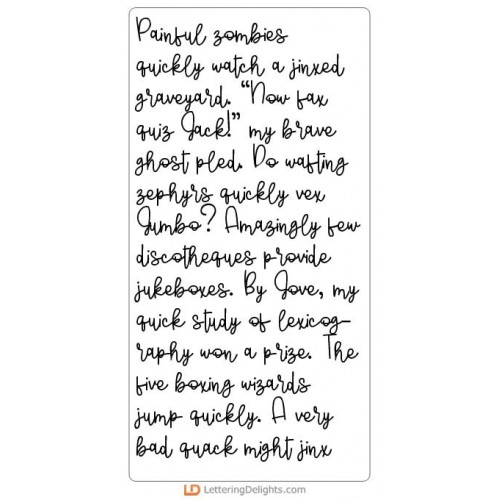 Painful zombies
quickly watch a jinxed
graveyard. “Now fax
quiz Jack!” my brave
ghost pled. Do wafting
zephyrs quickly vex
Jumbo? Amazingly few
discotheques provide
jukeboxes. By Jove, my
quick study of lexicog-
raphy won a prize. The
five boxing wizards
jump quickly. A very
bad quack might jinx
LD LetteringDelights.com